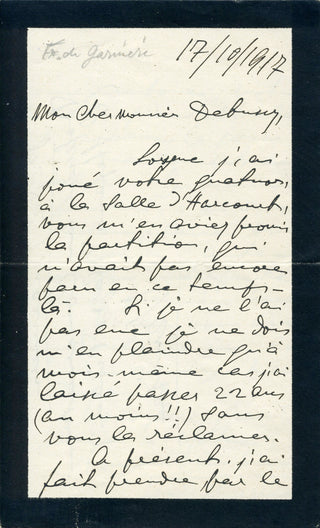 17/10/1917
Mon cher monsieur Debussy,
Lorsque j'ai
joué votre quatuor,
à la Salle d'Harcourt,
vous m'en aviez promis
la partition, qui
n'avait pas encore
paru en ce temps-
là. Si je ne l'ai
pas eue je ne dois
m'en plaindre qu'à
mois-même car j'ai
laissé passer 22 ans
(au moins!!) sans
vous la réclamer.
A présent, j'ai
fait prendre, par le